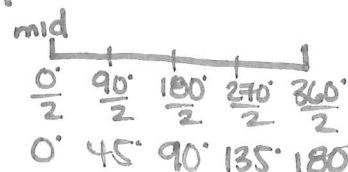 mid
0°/2 90°/2 180°/2 270°/2 360°/2
0° 45° 90° 135° 180°